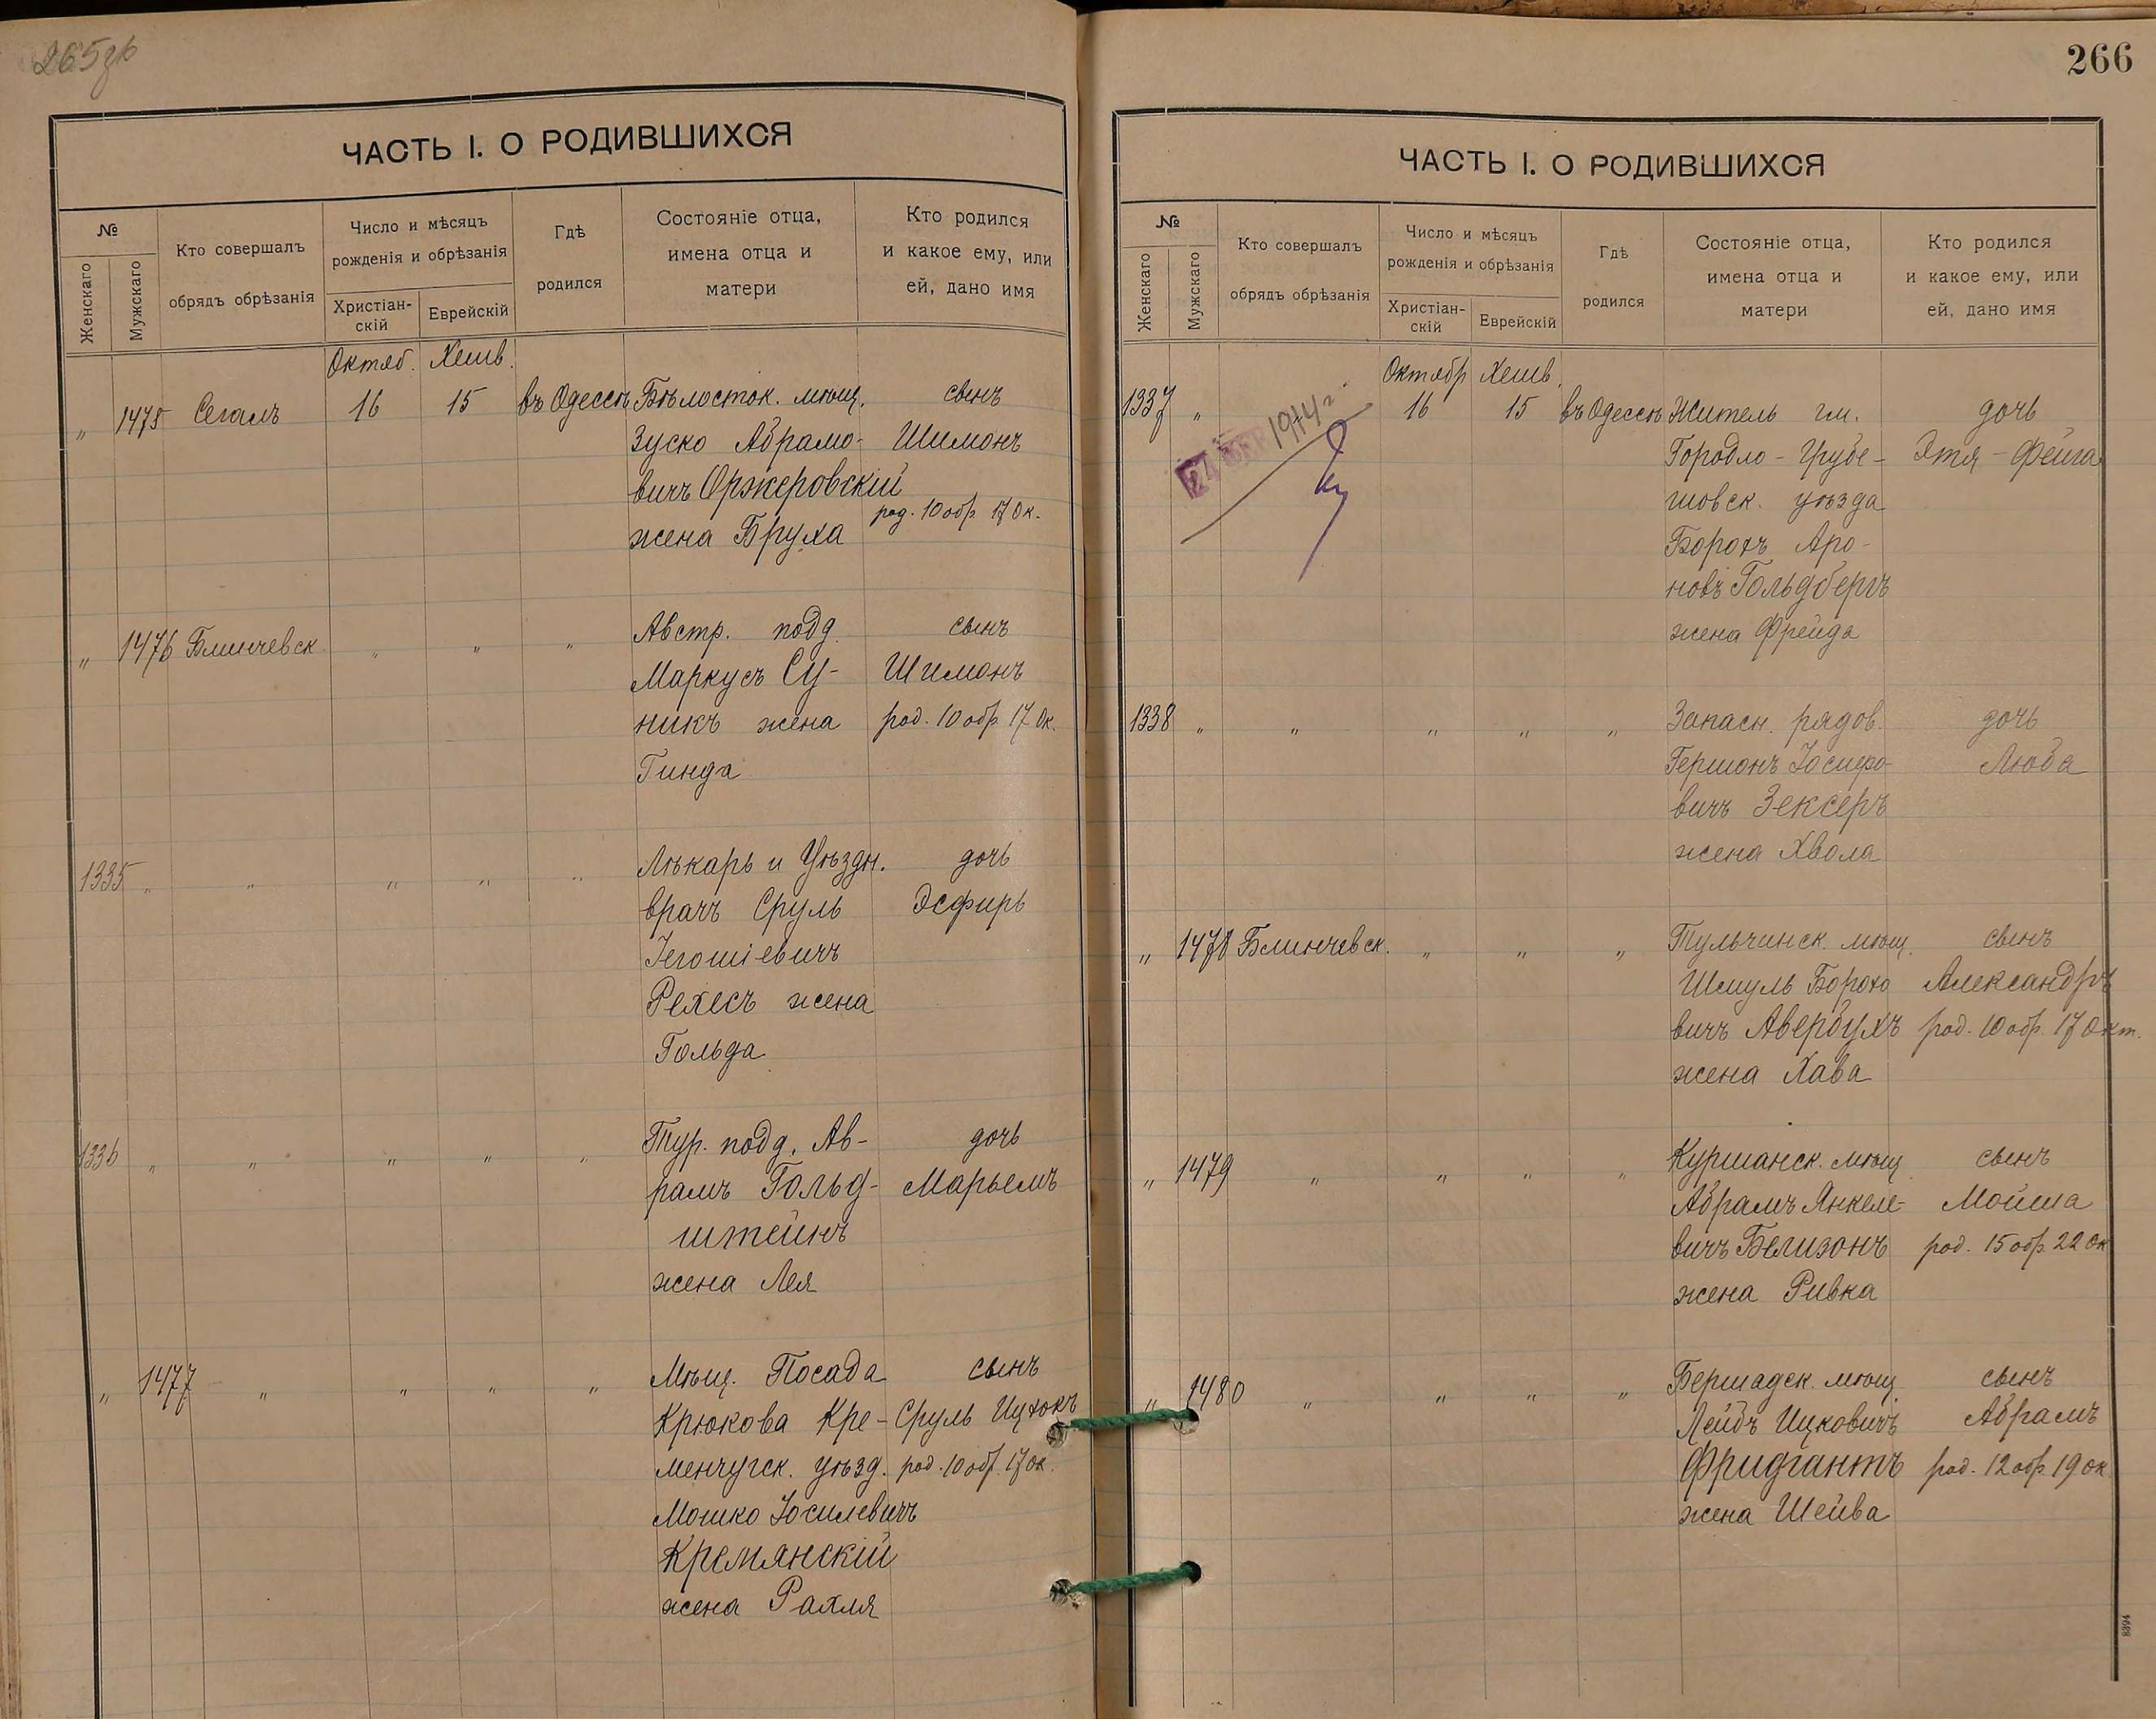 265зв
ЧАСТЬ I. О РОДИВШИХСЯ
№
Женскаго
Мужскаго
Кто совершалъ
обрядъ обрѣзанія
Число и мѣсяцъ
рожденія и обрѣзанія
Христіан-
скій
Еврейскій
Гдѣ
родился
Состояніе отца,
имена отца и
матери
Кто родился
и какое ему, или
ей, дано имя
Октяб. Хешв.
„ 1475 Сегалъ 16 15 въ Одессѣ Бѣлосток. мѣщ. сынъ
Зуско Абрамо- Шимонъ
вичъ Оржеровскій
род. 10 обр. 17 Ок.
жена Бруха
„ 1476 Блинчевск. „ „ „ Австр. подд. сынъ
Маркусъ Су- Шимонъ
никъ жена род. 10 обр. 17 Ок.
Гинда
1335 „ „ „ „ „ Лѣкарь и Уѣздн. дочь
врачъ Сруль Эсфирь
Іегошіевичъ
Рехесъ жена
Гольда
1336 „ „ „ „ „ Тур. подд. Ав- дочь
рамъ Гольд- Марьемъ
штейнъ
жена Лея
„ 1477 „ „ „ „ Мѣщ. Посада сынъ
Крюкова Кре- Сруль Ицхокъ
менчугск. уѣзд. род. 10 обр. 17 Ок.
Мошко Іосилевичъ
Кремянскій
жена Рахля
266
ЧАСТЬ I. О РОДИВШИХСЯ
№
Женскаго
Мужскаго
Кто совершалъ
обрядъ обрѣзанія
Число и мѣсяцъ
рожденія и обрѣзанія
Христіан-
скій
Еврейскій
Гдѣ
родился
Состояніе отца,
имена отца и
матери
Кто родился
и какое ему, или
ей, дано имя
Октябр Хешв.
1337 „ 16 15 въ Одессѣ Житель гм. дочь
24 1914 г
Городло - Грубе- Этя - Фейга
шовск. уѣзда
Борохъ Аро-
новъ Гольдбергъ
жена Фрейда
1338 „ „ „ „ „ Запасн. рядов. дочь
Гершонъ Іосифо- Люба
вичъ Зексеръ
жена Хвола
„ 1478 Блинчевск. „ „ „ Тульчинск. мѣщ. сынъ
Шмуль Борохо Александръ
вичъ Авербухъ род. 10 обр. 17 Окт.
жена Хава
„ 1479 „ „ „ „ Куршанск. мѣщ сынъ
Абрамъ Янкеле- Мойша
вичъ Белизонъ род. 15 обр. 22 Ок
жена Ривка
„ 1480 „ „ „ „ Бершадск. мѣщ сынъ
Лейбъ Ицковичъ Абрамъ
Фридгантъ род. 12 обр. 19 Ок
жена Шейва
8394